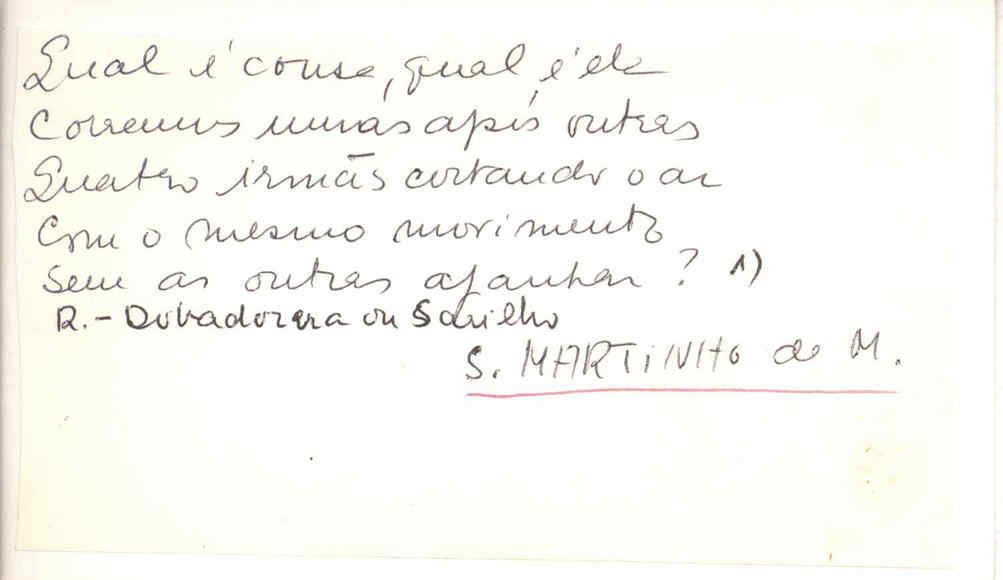 Qual é cousa, qual é ela
Corremus umas após outras
Quatro irmãs cortando o ar
Com o mesmo movimento
Sem as outras apanhar? 1)
R. - Dobadoura ou Sarilho
S. MARTINHO de M.